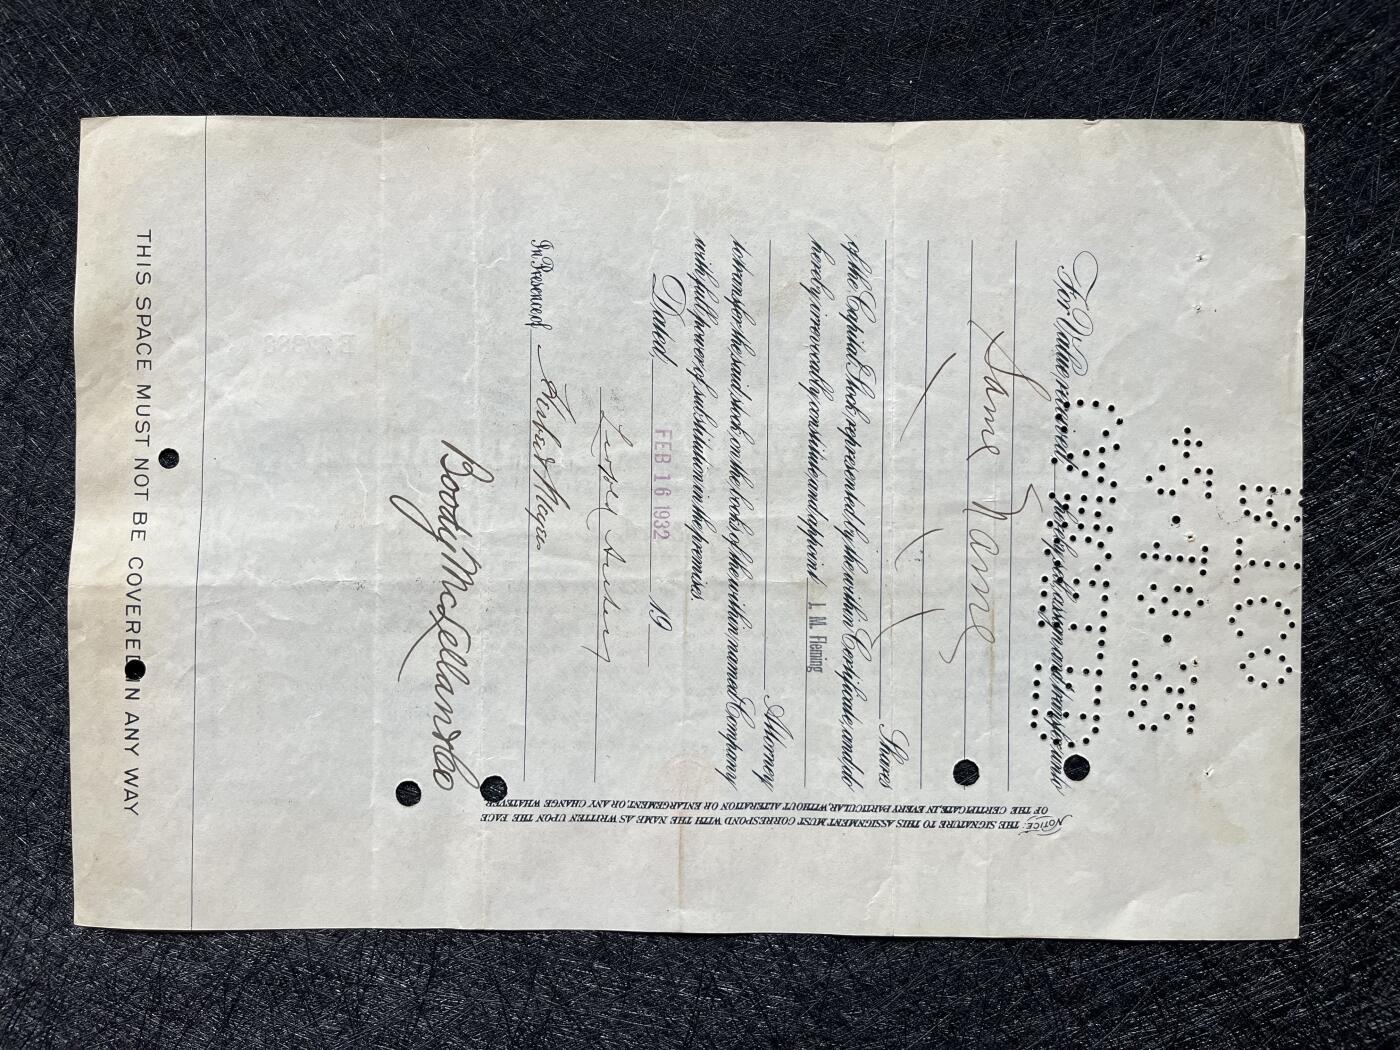 For Value received, hereby sell, assign and transfer unto
Same Name
Shares
of the Capital Stock represented by the within Certificate, and do
hereby irrevocably constitute and appoint J. M. Fleming
Attorney
to transfer the said stock on the books of the within named Company
with full power of substitution in the premises.
Dated, FEB 16 1932 19
In Presence of
Boody McLellan & Co
NOTICE: THE SIGNATURE TO THIS ASSIGNMENT MUST CORRESPOND WITH THE NAME AS WRITTEN UPON THE FACE
OF THE CERTIFICATE, IN EVERY PARTICULAR, WITHOUT ALTERATION OR ENLARGEMENT, OR ANY CHANGE WHATEVER
THIS SPACE MUST NOT BE COVERED IN ANY WAY